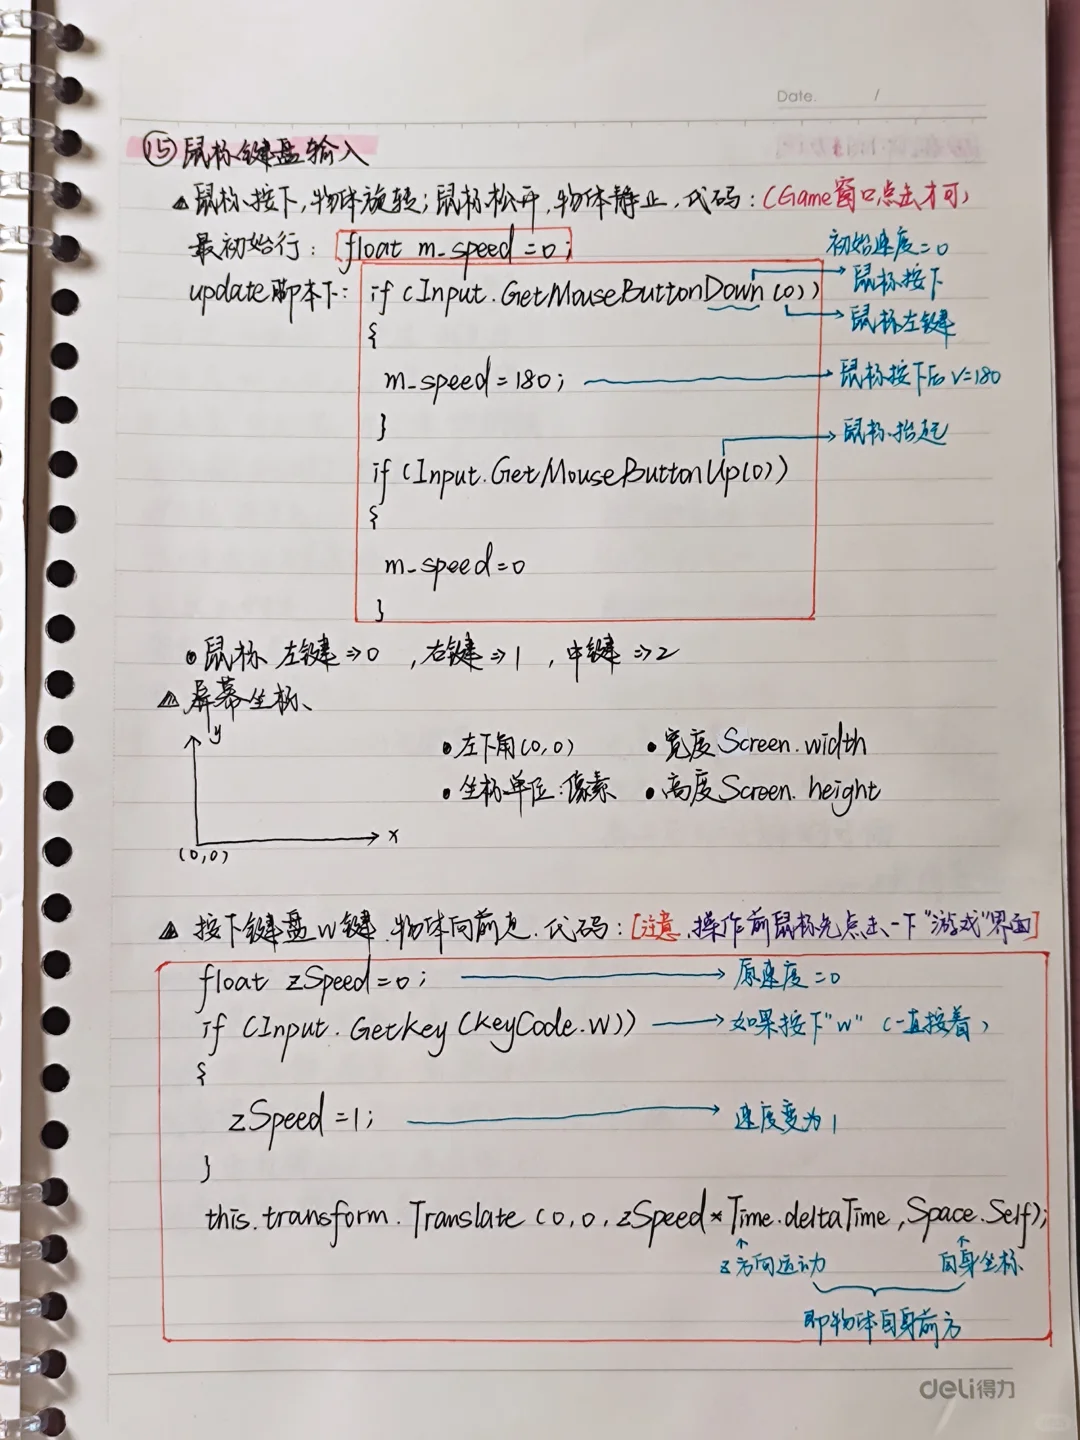 Date. /
⑮鼠标键盘输入
▲鼠标按下,物体旋转;鼠标松开,物体静止,代码:(Game窗口点击才可)
最初始行: float m_speed=0; 初始速度=0
update脚本下: if (Input.GetMouseButtonDown(0)) 鼠标按下
{ 鼠标左键
m_speed=180; 鼠标按下后 v=180
}
鼠标抬起
if (Input.GetMouseButtonUp(0))
{
m_speed=0
}
鼠标 左键⇒0 ,右键⇒1 ,中键⇒2
▲屏幕坐标、
y
•左下角(0,0) •宽度Screen.width
•坐标单位:像素 •高度Screen.height
x
(0,0)
▲ 按下键盘W键,物体向前走.代码:[注意,操作前鼠标先点击一下"游戏"界面]
float zSpeed=0; 原速度=0
if (Input.GetKey(KeyCode.W)) 如果按下"W" (一直按着)
{
zSpeed=1; 速度变为1
}
this.transform.Translate(0,0,zSpeed*Time.deltaTime,Space.Self);
z方向运动 自身坐标
即物体自身前方
deli得力